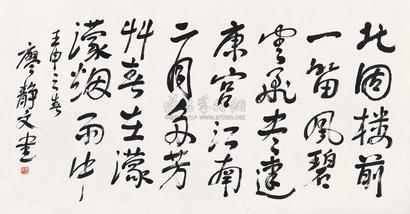 北固楼前
一笛风碧
云飞尽建
康宫江南
二月多芳
艸春在濛
濛烟雨中
壬申之春
廖静文书